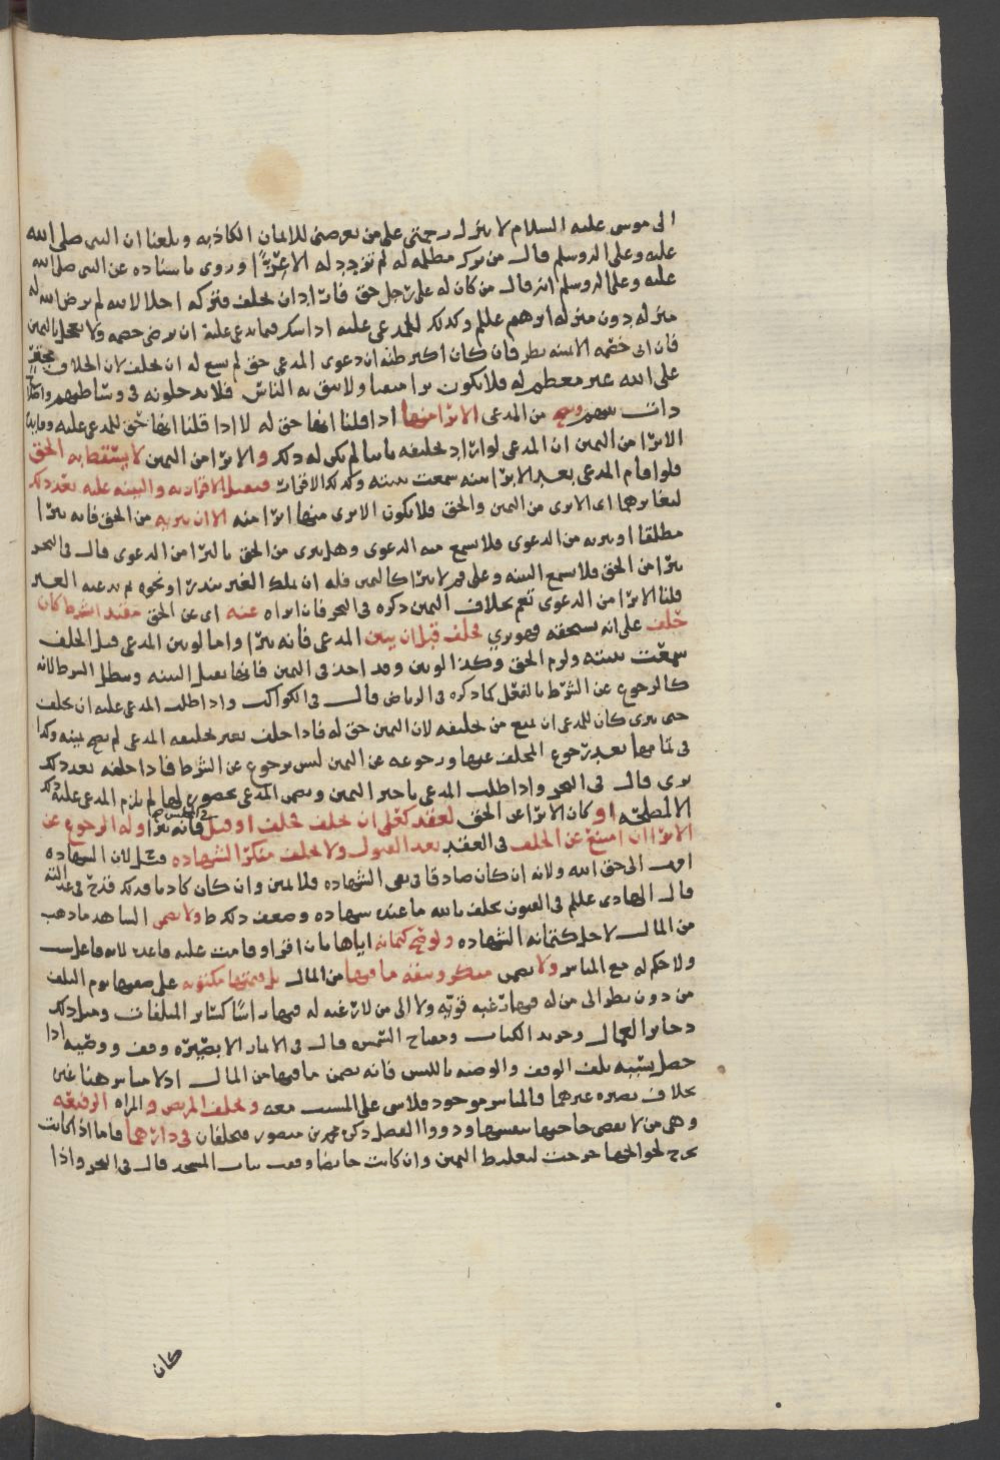 الى موسى عليه السلام لا ينزل رحمتي على من يعرضني للايمان الكاذبه وبلغنا ان النبي صلى الله
عليه وعلى اله وسلم قال من ترك مظلمه له لم تزدد له الا عزًّا وروى باسناده عن النبي صلى الله
عليه وعلى اله وسلم انه قال من كان له على رجل حق فاراد ان يحلفه فتركه اجلالا لله لم يرض الله له
منزله دون منزله ابرهيم عليلم وكذلك للمدعى عليه اذا انكر فيما يدعى عليه ان يرضي خصمه ولا يعجل باليمين
فان ابى خصمه الا يمينه نظر فان كان اكبر ظنه ان دعوى المدعي حق لم يسع له ان يحلف لان الحلاف
على الله غير معظم له فلا يكون برا متقيا ولا يثق به الناس فلا يدخلونه في وساطهم
ذات بينهم ويصح من المدعي الابرا منها اذا قلنا انها حق له لا اذا قلنا انها حق للمدعى عليه
الابرا من اليمين ان المدعي لو اراد تحليفه ثانيا لم يكن له ذلك والابرا من اليمين لا يسقط به الحق
فلو اقام المدعي بعد الابرا بينه سمعت بينته وكذلك الاقرار فيقبل الاقرار به والبينه عليه بعد ذلك
لتغايرهما اي الابرا من اليمين والحق فلا يكون الابرا منها ابرا منه الا ان يبريه من الحق فانه يبرا
مطلقا او يبريه من الدعوى فلا يسمع منه الدعوى وهل يبرى من الحق بالبرا من الدعوى قال في البحر
يبرا من الحق فلا يسمع البينه وعلى لا يبرا كاليمين فله ان ملك الغير بنذر او نحوه ثم يدعيه الغير
قلنا الابرا من الدعوى تعم بخلاف اليمين ذكره في البحر فان ابراه عنه اي عن الحق مقيد بشرط كان
حلف على انه يستحقه فهو بري فحلف قبل ان يبين المدعي فانه يبرا واما لو بين المدعي قبل الحلف
سمعت بينته ولزم الحق وكذا لو بين وقد اخذ في اليمين فانها تقبل البينه ويبطل الشرط لانه
كالرجوع عن الشرط بالفعل كما ذكره في الرياض قال في الكواكب واذا طلب المدعى عليه ان يحلف
حتى يبرى كان للمدعي ان يمنع من تحليفه لان اليمين حق له فاذا حلف بغير تحليف المدعي لم يصح يمينه وكذا
في تمامها بعد رجوع المحلف عنها ورجوعه عن اليمين ليس برجوع عن الشرط فاذا حلفه بعد ذلك
برى قال في البحر واذا طلب المدعي تاخير اليمين لم يلزم المدعى عليه ذلك
الا لمصلحه او كان الابرا عن الحق لعقد كعلى ان حلف فحلف او قبل فانه يبرا وله الرجوع عن
الابرا ان امتنع عن الحلف في العقد بعد القبول ولا يحلف منكر الشهاده قيل لان الشهاده
اقرب الى حق الله ولانه ان كان صادقا في نفي الشهاده فلا يمين وان كان كاذبا فذلك قدح في عدالته
قال الهادي عليلم في الفنون يحلف بالله ما عنده شهاده وضعف ذلك ط ولا يضمن الشاهد ما ذهب
من المال لاجل كتمانه الشهاده ولو صح كتمانه اياها بان اقر او قامت عليه لانه فاعل سبب
ولا حكم له مع المباشر ولا يضمن منكر وثيقه ما فيها من المال بل قيمتها مكتوبه على صفتها يوم التلف
من دون نظر الى من له فيها رغبه قويه ولا الى من لا رغبه له فيها راسًا كساير المتلفات ومثل ذلك
دفاتر العمال وجرید الكتاب ومفتاح الشمس قال في الاثمار الا بصيره وقف ووصيه اذا
حصل بسببه تلف الوقف والوصيه باللبس فانه يضمن ما فيها من المال اذ لا مباشر هنا غيره
بخلاف بصيره غيرهما فالمباشر موجود فلا شي على المسبب معه ويحلف المريض والمراه الرفيعه
وهي من لا تقضي حاجتها بنفسها وذووا الفضل ذكره محمد بن منصور فيحلفان في دارهما فاما اذا كانت
تخرج لحوائجها خرجت لتغليظ اليمين وان كانت حائضا وقفت بباب المسجد قال في البحر واذا
كان